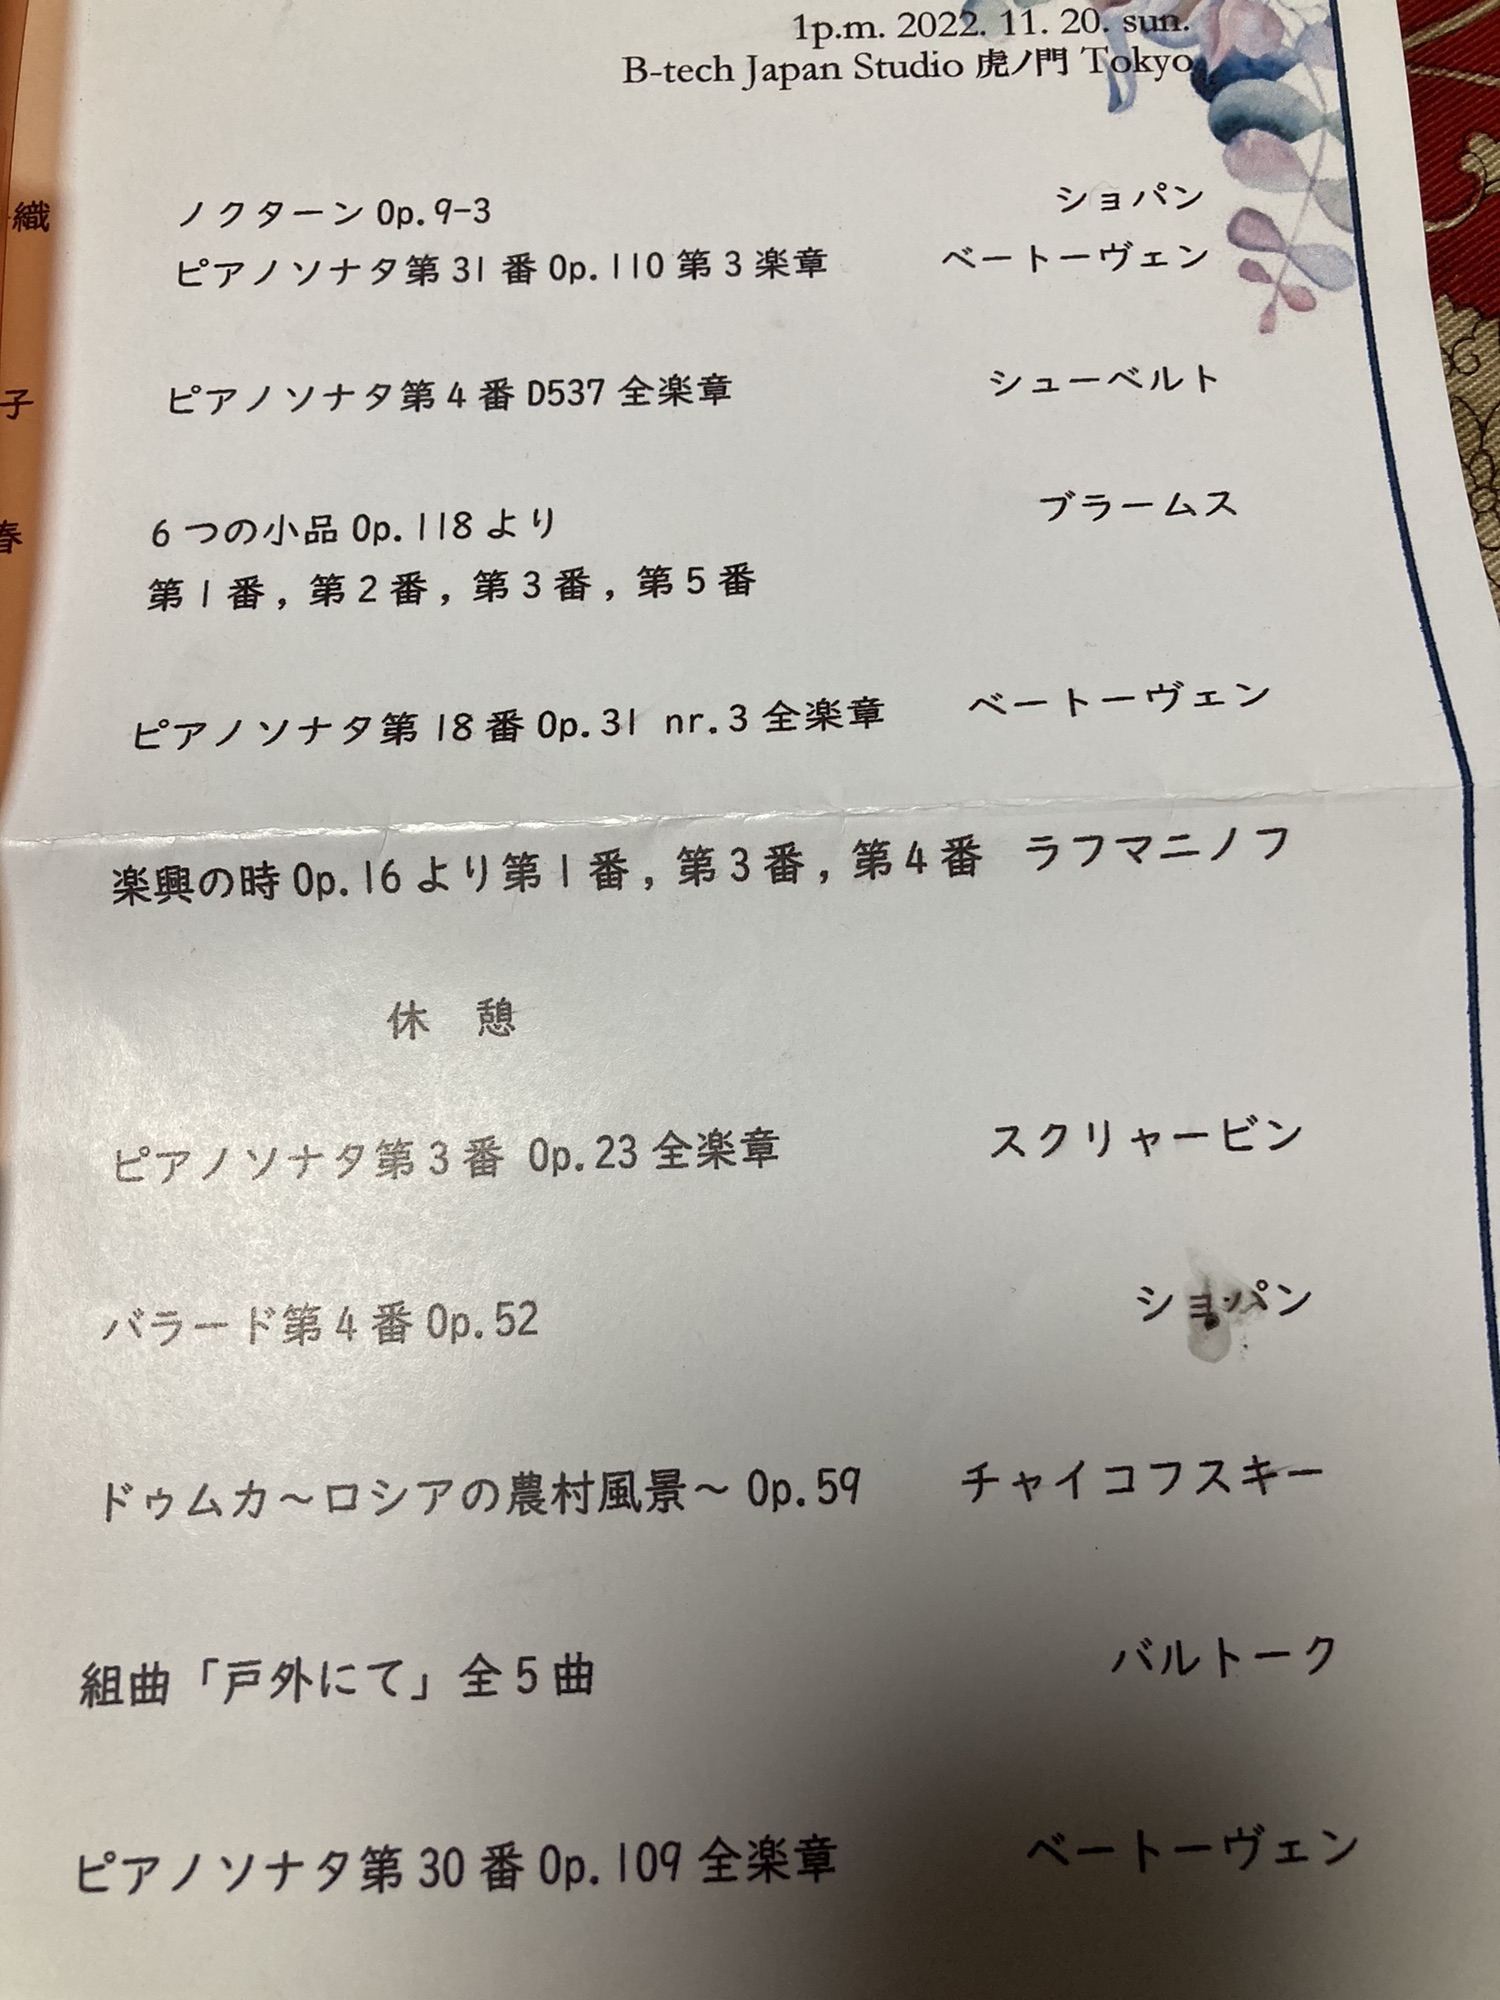 1p.m. 2022. 11. 20. sun.
B-tech Japan Studio 虎ノ門 Tokyo
ノクターン Op.9-3 ショパン
ピアノソナタ第 31 番 Op.110 第 3 楽章 ベートーヴェン
織
ピアノソナタ第 4 番 D537 全楽章 シューベルト
子
6 つの小品 Op.118 より ブラームス
春
第 1 番 , 第 2 番 , 第 3 番 , 第 5 番
ピアノソナタ第 18 番 Op.31 nr.3 全楽章 ベートーヴェン
楽興の時 Op.16 より第 1 番 , 第 3 番 , 第 4 番 ラフマニノフ
休 憩
ピアノソナタ第 3 番 Op.23 全楽章 スクリャービン
バラード第 4 番 Op.52 ショパン
ドゥムカ～ロシアの農村風景～ Op.59 チャイコフスキー
組曲「戸外にて」全 5 曲 バルトーク
ピアノソナタ第 30 番 Op.109 全楽章 ベートーヴェン